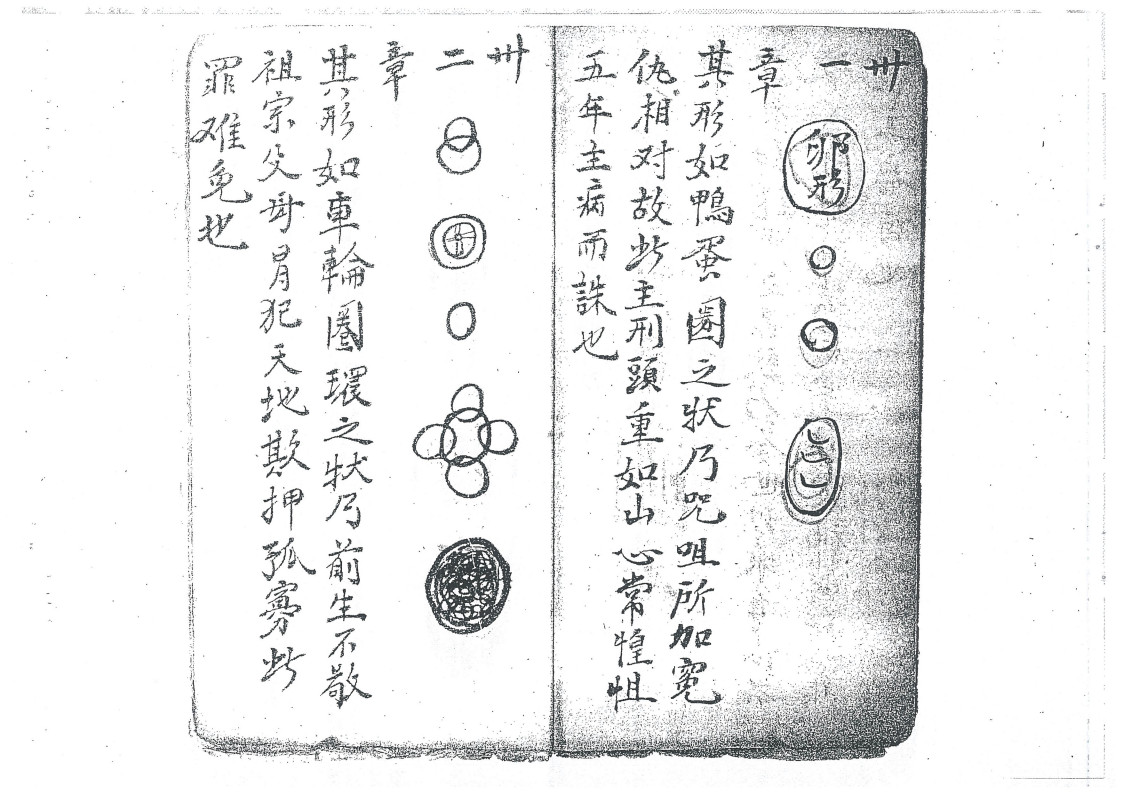 卅一
章
卵形
其形如鴨蛋圏之状乃咒咀所加寃
仇相对故此主刑頭重如山心常惶怚
五年主病而誅也
卅二
章
其形如車輪圏環之状乃前生不敬
祖宗父母冐犯天地欺押孤寡此
罪难免也